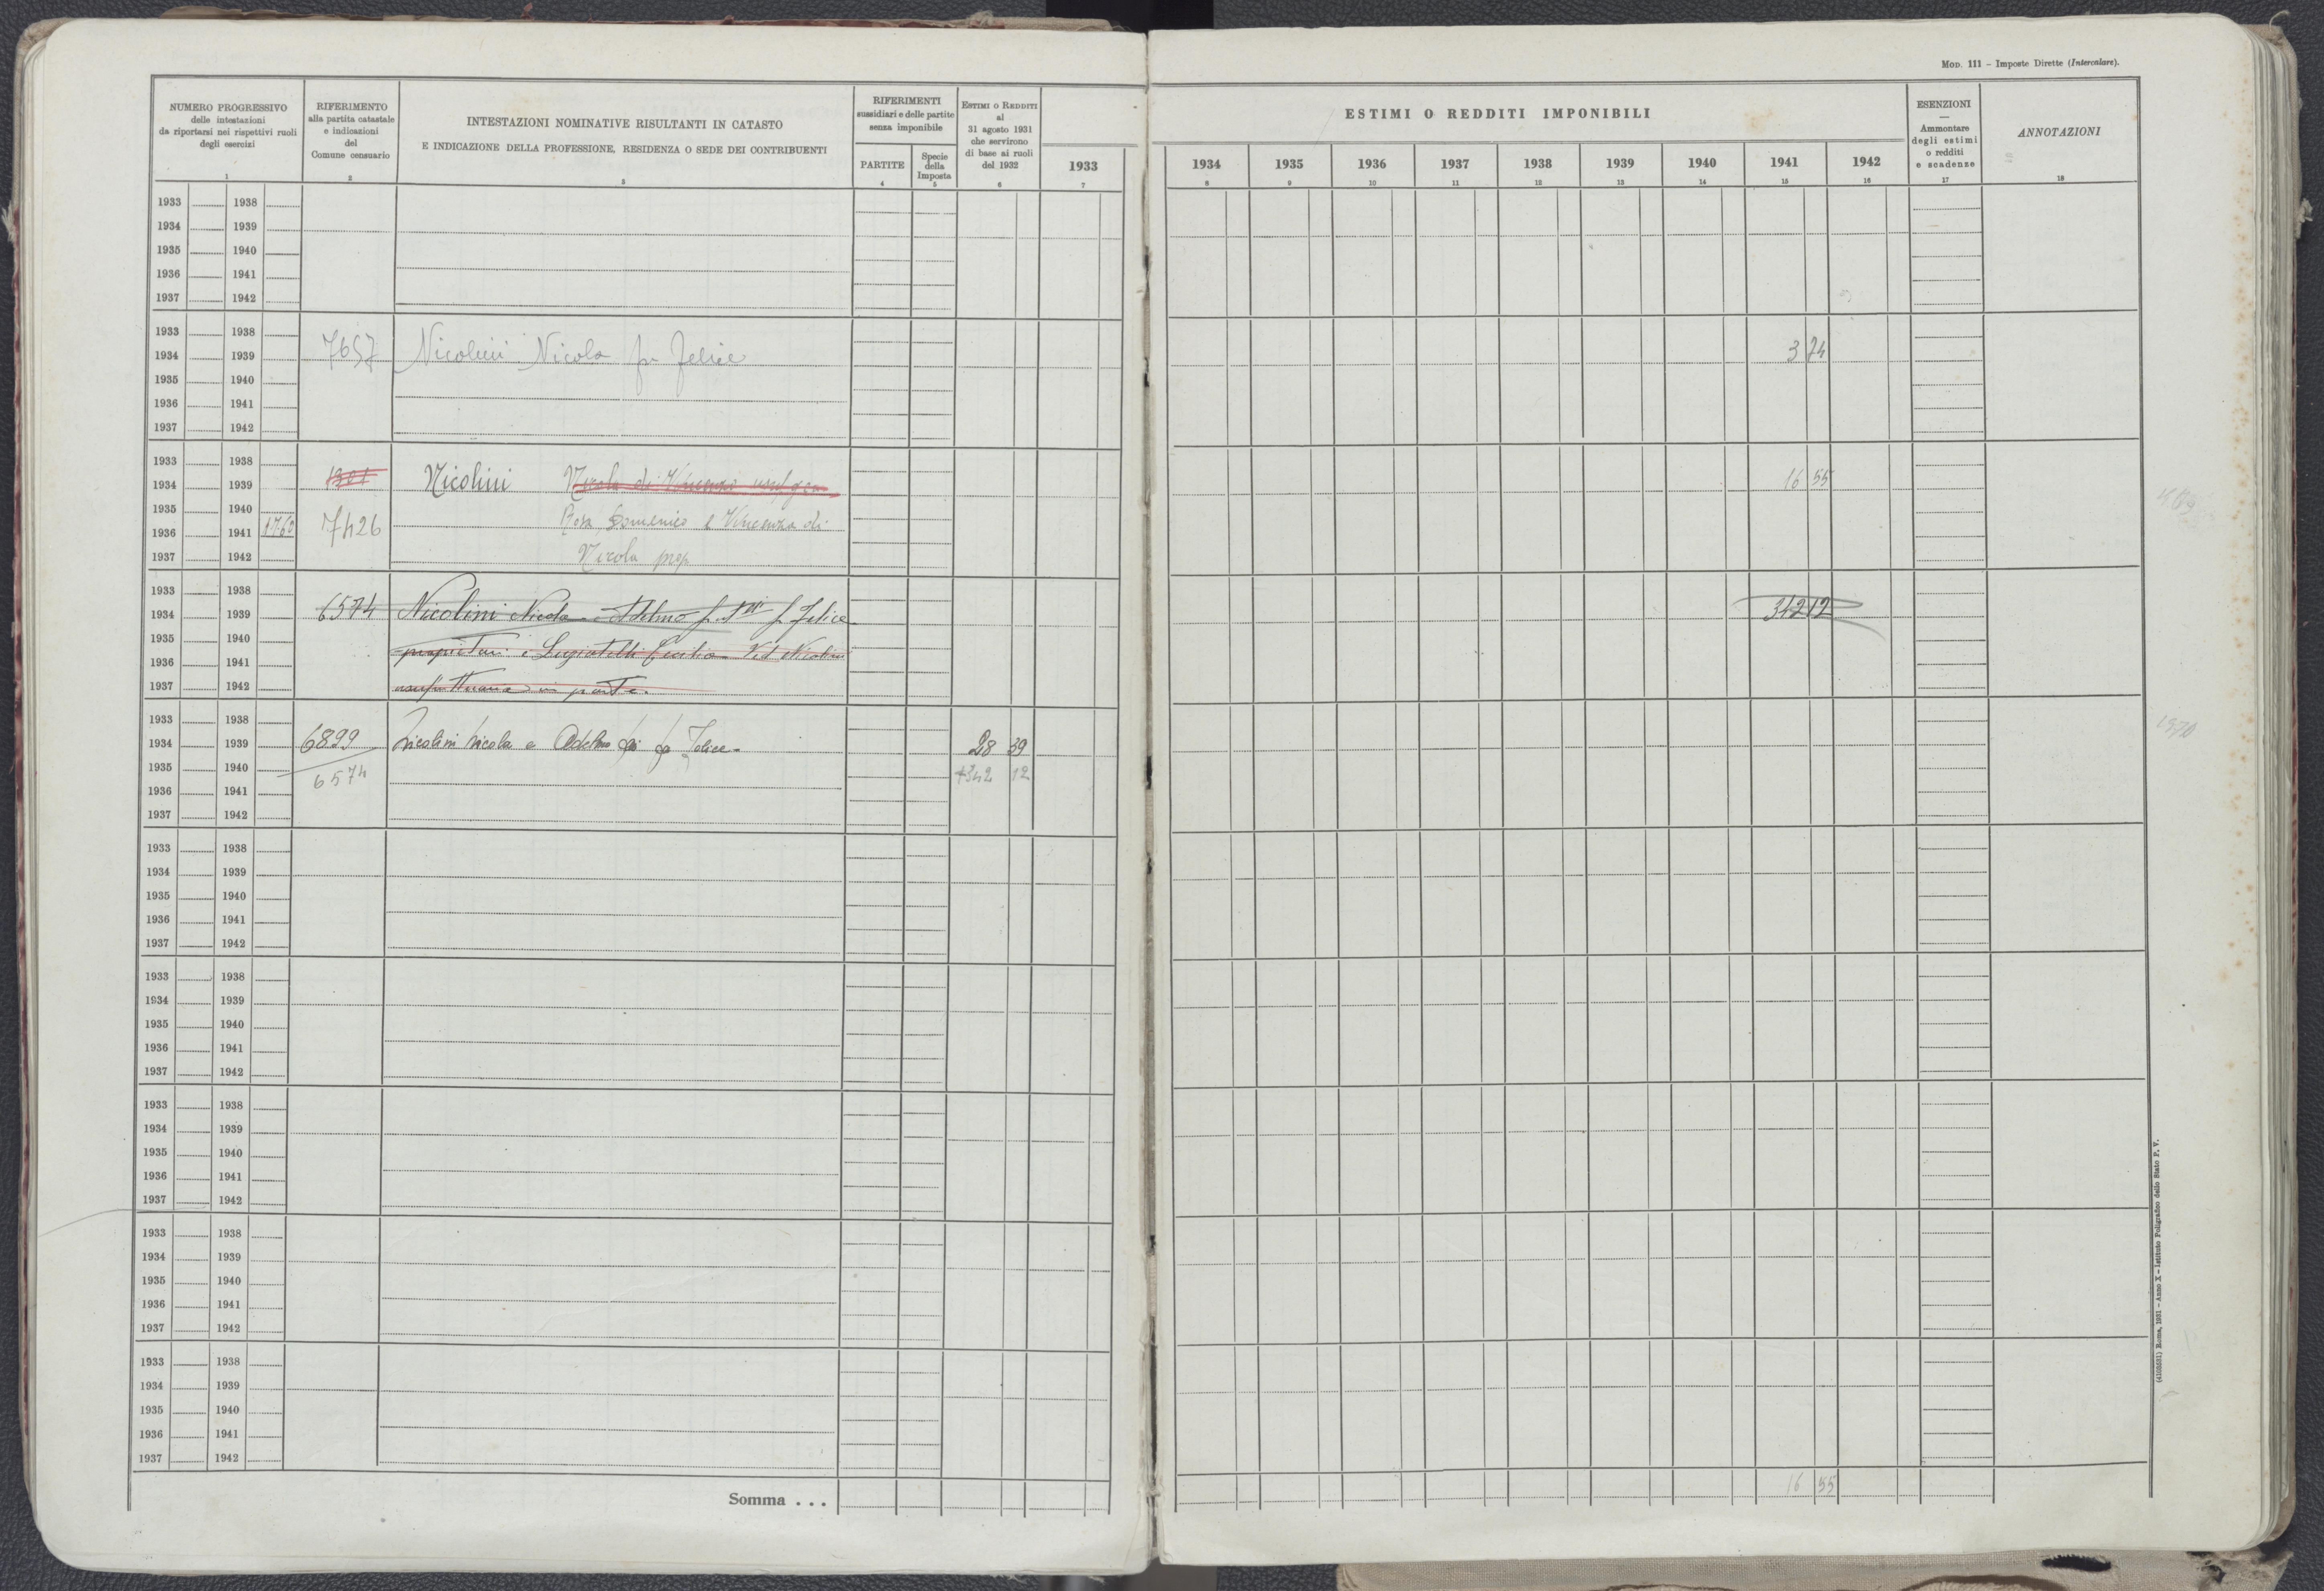 MOD. 111 – Imposte Dirette (Intercalare).
NUMERO PROGRESSIVO
delle intestazioni
da riportarsi nei rispettivi ruoli
degli esercizi
1
RIFERIMENTO
alla partita catastale
e indicazioni
del
Comune censuario
2
INTESTAZIONI NOMINATIVE RISULTANTI IN CATASTO
E INDICAZIONE DELLA PROFESSIONE, RESIDENZA O SEDE DEI CONTRIBUENTI
3
RIFERIMENTI
sussidiari e delle partite
senza imponibile
PARTITE
4
Specie
della
Imposta
5
ESTIMI O REDDITI
al
31 agosto 1931
che servirono
di base ai ruoli
del 1932
6
ESTIMI O REDDITI IMPONIBILI
1933 1934 1935 1936 1937 1938 1939 1940 1941 1942
7 8 9 10 11 12 13 14 15 16
ESENZIONI
—
Ammontare
degli estimi
o redditi
e scadenze
17
ANNOTAZIONI
18
1933 1938
1934 1939
1935 1940
1936 1941
1937 1942
1933 1938
1934 1939 7657 Nicolini Nicola fu Felice 3 74
1935 1940
1936 1941
1937 1942
1933 1938
1934 1939 1301 Nicolini Nicola di Vincenzo 16 55
1935 1940
1936 1941 1760 7426 Rosa Domenico e Vincenza di
1937 1942 Nicola prop
1933 1938
1934 1939 6574 Nicolini Nicola Adelmo f.lli f Felice 342 12
1935 1940
1936 1941 proprietari e Cecilia Ved Nicolini
1937 1942 usufruttuaria in parte.
1933 1938
1934 1939 6899 Nicolini Nicola e Adelmo fu Felice 28 39
1935 1940 6574 +342 12
1936 1941
1937 1942
1370
1933 1938
1934 1939
1935 1940
1936 1941
1937 1942
1933 1938
1934 1939
1935 1940
1936 1941
1937 1942
1933 1938
1934 1939
1935 1940
1936 1941
1937 1942
1933 1938
1934 1939
1935 1940
1936 1941
1937 1942
1933 1938
1934 1939
1935 1940
1936 1941
1937 1942
Somma . . . 16 55
(4105531) Roma, 1931 – Anno X – Istituto Poligrafico dello Stato P. V.